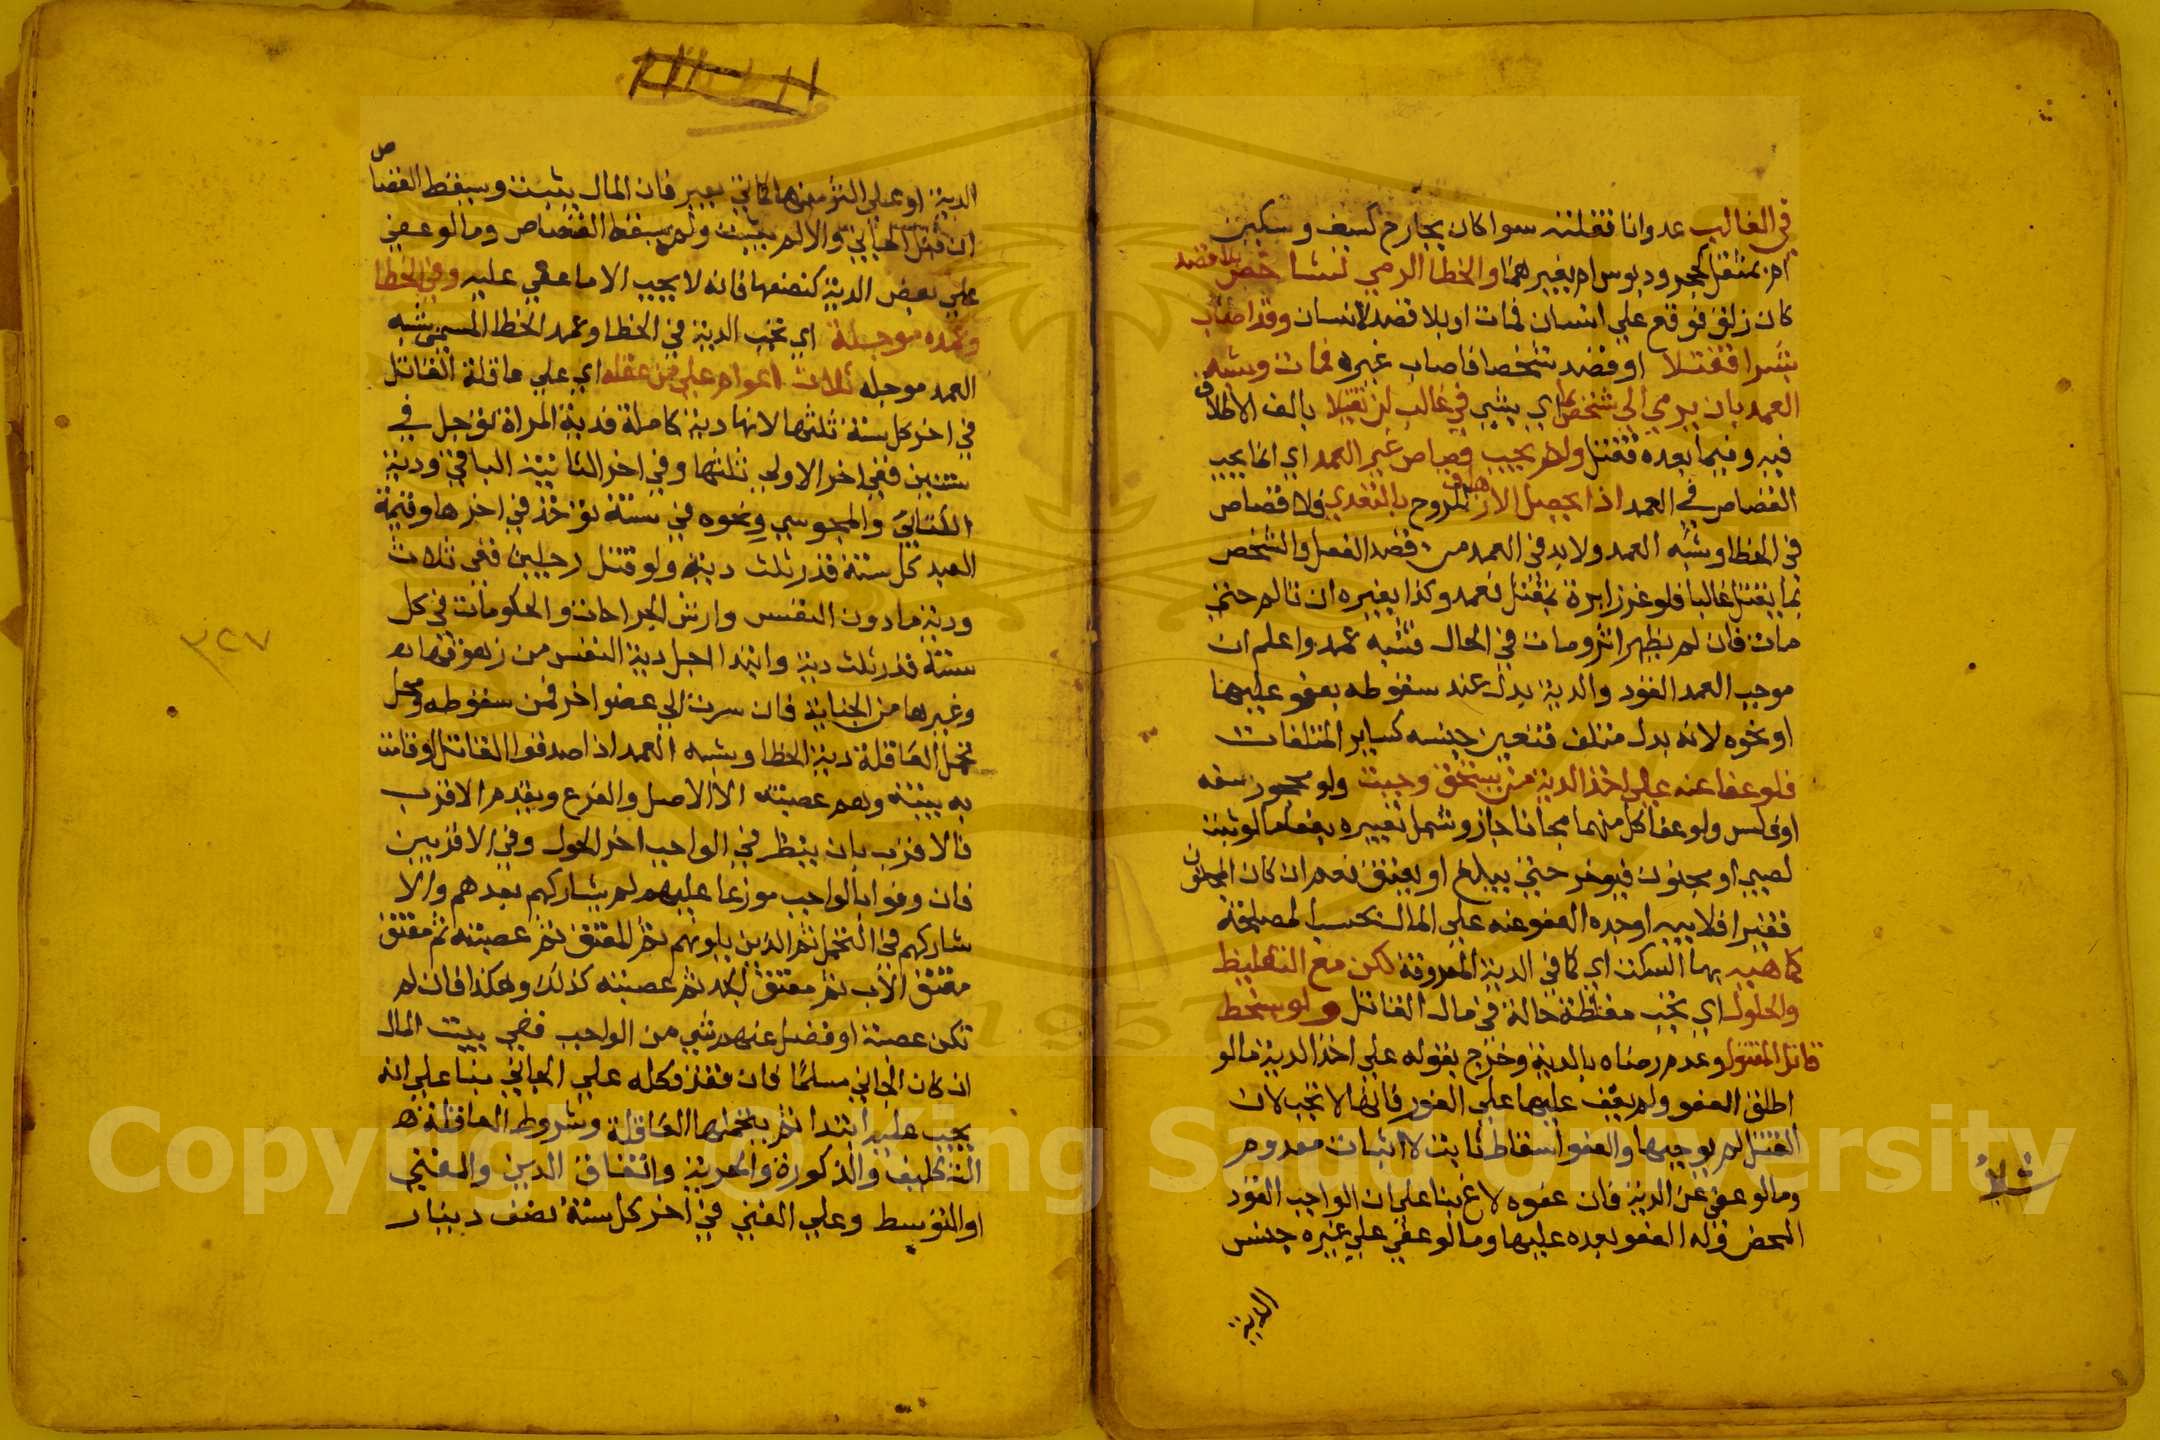 في الغالب عدوانا فقتلته سوا كان بجارح كسيف وسكين
ام بمثقل كحجر ودبوس ام بغيرهما والخطا الرمي لشاخص بلا قصد
كان زلق فوقع علي انسان فمات او بلا قصد لانسان وقد اصاب
بشرا فقتلا او قصد شخصا فاصاب غيره فمات وشبه
العمد بان يرمي الي شخص بما اي بشي في غالب لن يقتلا بالف الاطلاق
فيه وفيما بعده فقتل ولم يجب قصاص غير العمد اي انما يجب
القصاص في العمد اذا يحصل الازهاق للروح بالتعدي فلا قصاص
في الخطا وشبه العمد ولا بد في العمد من قصد الفعل والشخص
بما يقتل غالبا فلو غرز ابرة بمقتل فعمد وكذا بغيره ان تالم حتي
مات فان لم يظهر اثر ومات في الحال فشبه عمد واعلم ان
موجب العمد القود والدية بدل عند سقوطه بعفو عليها
او نحوه لانه بدل متلف فتعين جنسه كساير المتلفات
فلو عفا عنه علي اخذ الدية من يستحق وجبت ولو محجور سفه
او فلس ولو عفا كل منهما مجانا جاز وشمل تعبيره بفعل مالو ثبت
لصبي او مجنون فيوخر حتي يبلغ او يفيق نعم ان كان المجنون
فقيرا فلابيه او جده العفو عنه علي المال بحسب المصلحة
كما هيه بها السكت اي كما في الدية المعروفة لكن مع التغليظ
والحلول اي تجب مغلظة حالة في مال القاتل ولو سخط
قاتل المقتول وعدم رضاه بالدية وخرج بقوله علي اخذ الدية مالو
اطلق العفو ولم يقف عليها علي الفور فانها لا تجب لان
القتل لم يوجبها والعفو اسقاط ثابت لا اثبات معدوم
ومالو عفي عن الدية فان عفوه لاغ بنا علي ان الواجب القود
المحض وله العفو بعده عليها ومالو عفي علي غيره جنس
الدية
الدية او علي اكثر منها كماتي بعير فان المال يثبت ويسقط القصاص
ان قبل الجاني والا لم يثبت ولم يسقط القصاص ومالو عفي
علي بعض الدية كنصفها فانه لا يجب الا ما عفي عليه وفي الخطا
وعمده موجلة اي تجب الدية في الخطا وعمد الخطا المسمي بشبه
العمد موجله ثلاث اعوام علي من عقله اي علي عاقلة القاتل
في اخر كل سنة ثلثها لانها دية كاملة فدية المراة توجل في
سنتين ففي اخر الاولي ثلثها وفي اخر الثانية الباقي ودية
الكتابي والمجوسي ونحوه في سنة توخذ في اخرها وقيمة
العبد كل سنة قدر ثلث دية ولو قتل رجلين ففي ثلاث
ودية مادون النفس وارش الجراحات والحكومات في كل
سنة قدر ثلث دية وابتدا اجل دية النفس من زهوقها به
وغيرها من الجناية فان سرت الي عضو اخر فمن سقوطه ومحل
تحمل العاقلة دية الخطا وشبه العمد اذا صدقوا القاتل او قامت
به بينة وهم عصبته الا الاصل والفرع ويقدم الاقرب
فالاقرب بان ينظر في الواجب اخر الحول وفي الاقربين
فان وفوا بالواجب موزعا عليهم لم يشاركهم بعدهم والا
شاركهم في التحمل ثم الذين يلونهم ثم المعتق ثم عصبته ثم معتق
معتق الاب ثم معتق الجد ثم عصبته كذلك وهكذا فان لم
تكن عصبة او فضل عنهم شي من الواجب ففي بيت المال
ان كان الجاني مسلما فان فقد فكله علي الجاني بنا علي انه
يجب عليه ابتدا ثم يتحملها العاقلة وشروط العاقلة
التكليف والذكورة والحرية واتفاق الدين والغني
او التوسط وعلي الغني في اخر كل سنة نصف دينار
٣٤٧
Copyright © King Saud University
1957